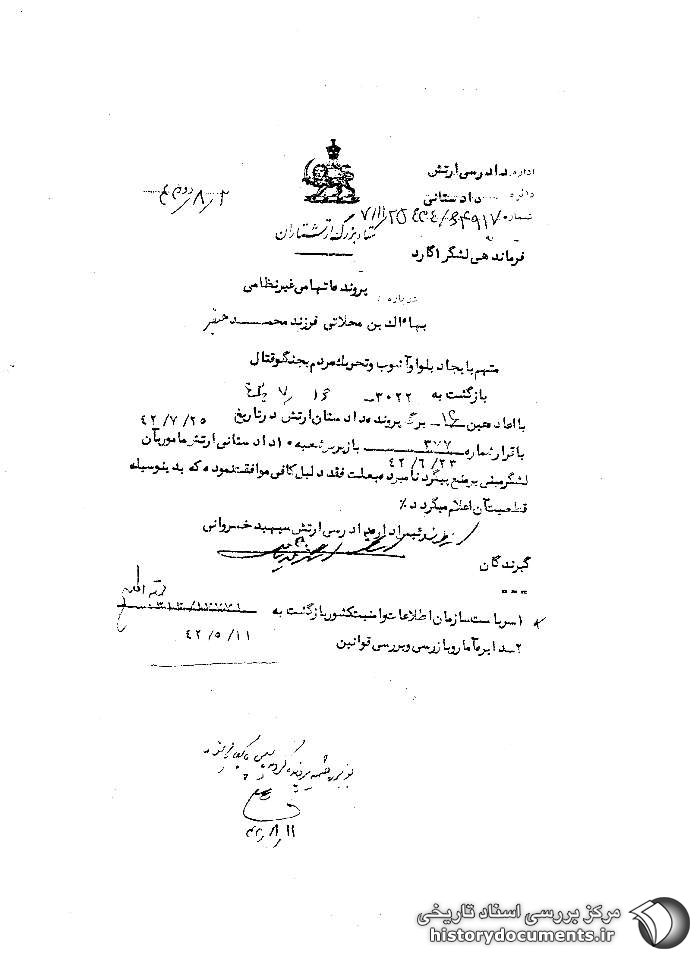 اداره دادرسی ارتش
دائره دادستانی
شماره
ستاد بزرگ ارتشتاران
فرماندهی لشگر ۱ گارد
درباره پرونده اتهامی غیرنظامی
بهاءالدین محلاتی فرزند محمد جعفر
متهم بایجاد بلوا و آشوب و تحریک مردم بجنگ و قتال
بازگشت به ۳۰۲۲ـ
با اعاده عین برگ پرونده دادستان ارتش در تاریخ ۴۲/۷/۲۵
با قرار شماره ۳۷۷ بازپرس شعبه ۱۰ دادستانی ارتش مامور بآن
۴۲/۶/۲۳
لشگر مبنی بر منع پیگرد نامبرده بعلت فقد دلیل کافی موافقت نموده که بدینوسیله
قطعیت آن اعلام میگردد٪
از طرف رئیس اداره دادرسی ارتش سپهبد خسروانی
گیرندگان
۱ـ ریاست سازمان اطلاعات و امنیت کشور بازگشت به
۲ـ دایره آمار و بازرسی و بررسی قوانین ۴۲/۵/۱۱
مرکز بررسی اسناد تاریخی
historydocuments.ir